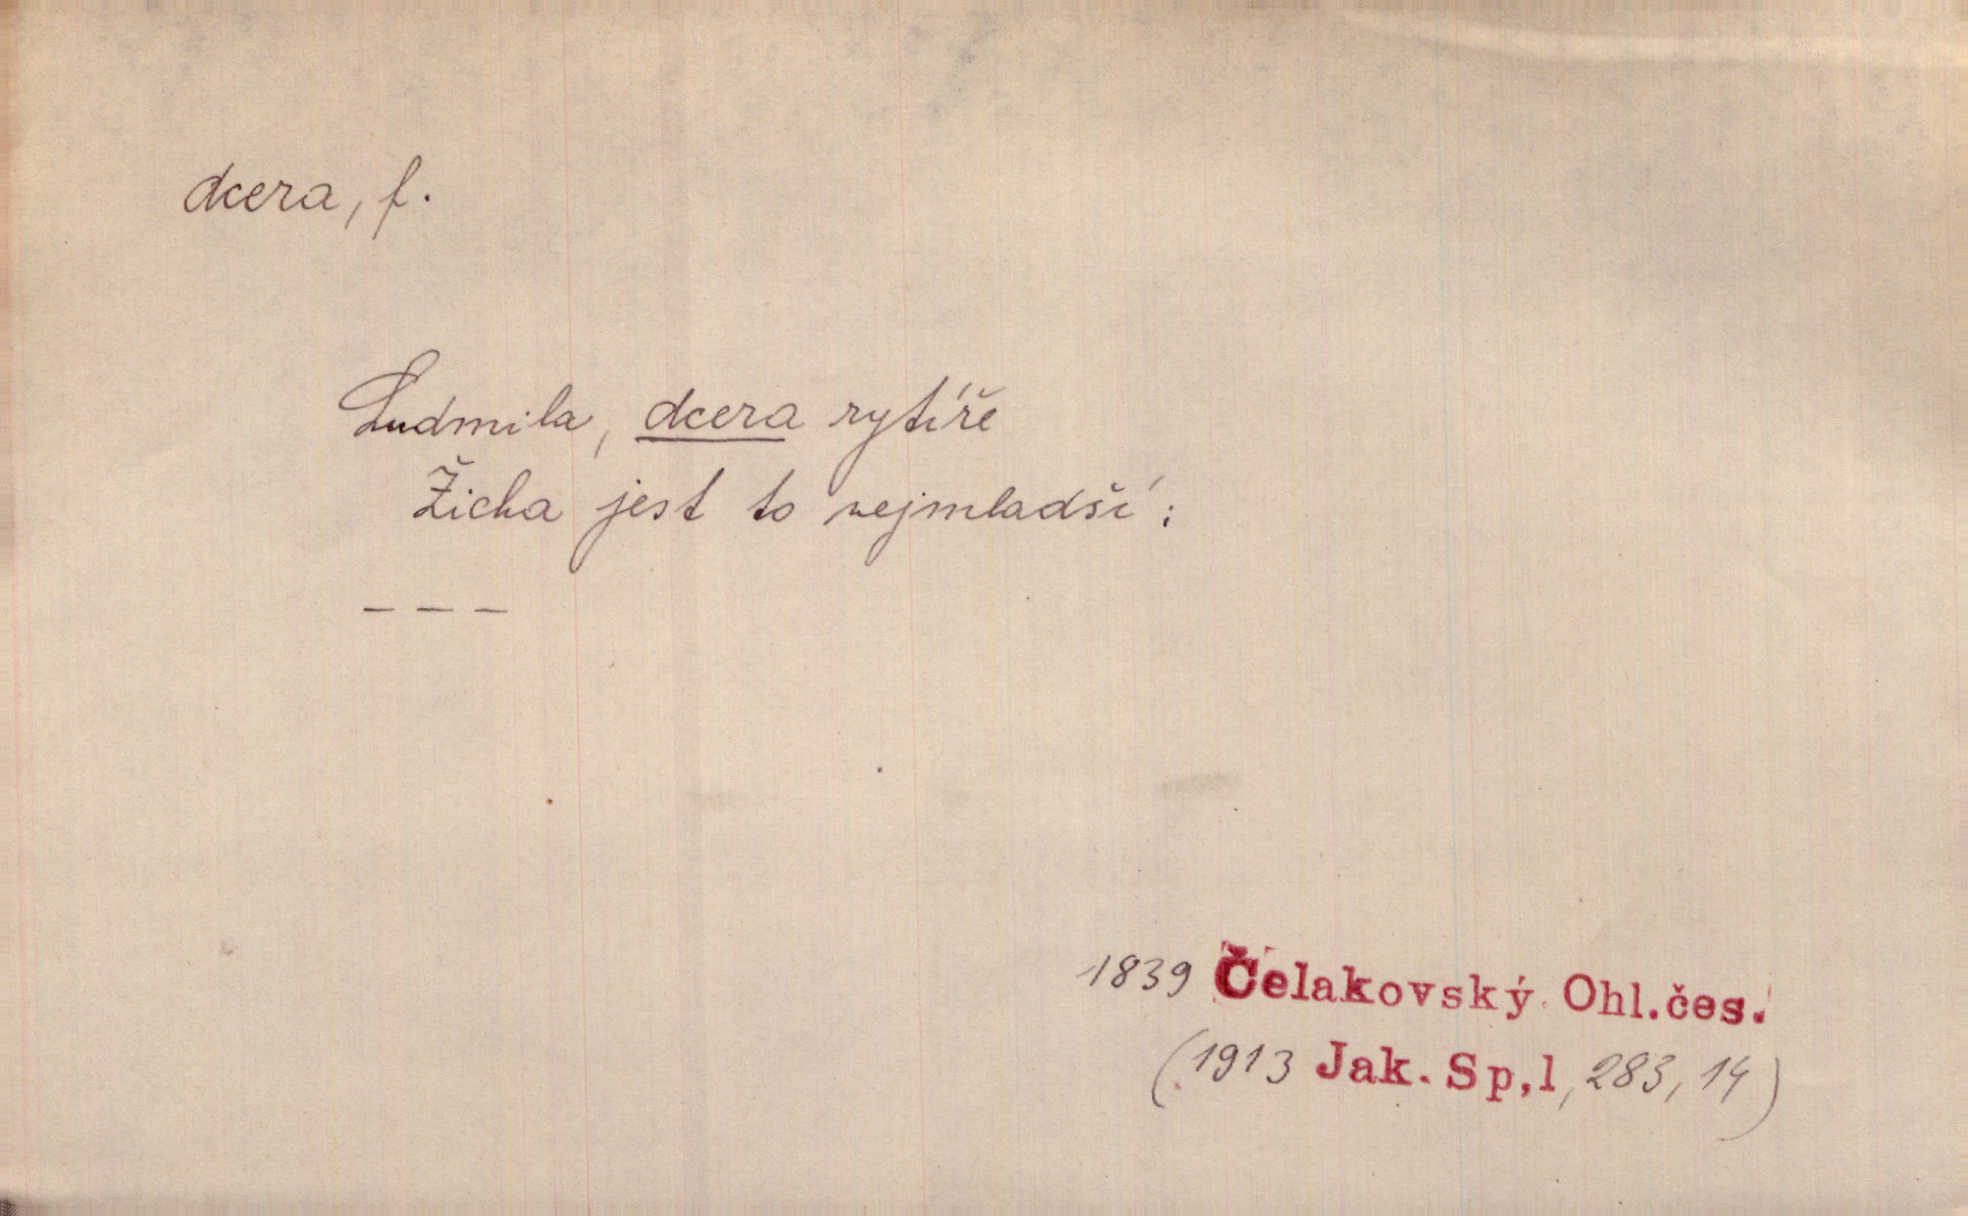 dcera, f.
Ludmila, dcera rytíře
Žicha jest to nejmladší:
– – –
1839 Čelakovský Ohl.čes.
(1913 Jak. Sp,1, 283, 14)